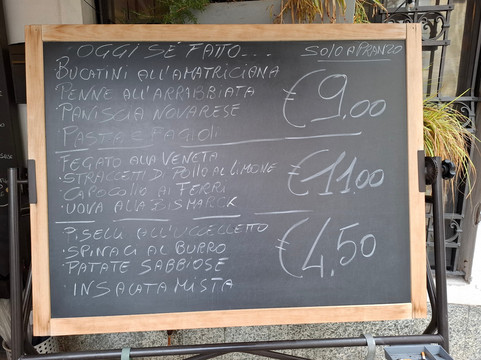 OGGI SE FATTO....
SOLO A PRANZO
BUCATINI ALL'AMATRICIANA
PENNE ALL'ARRABBIATA
PANISCIA NOVARESE
PASTA E FAGIOLI
€9,00
FEGATO ALLA VENETA
STRACCETTI DI POLLO AL LIMONE
CAPOCOLLO AI FERRI
UOVA ALLA BISMARCK
€11,00
PISELLI ALL'UCCELLETTO
SPINACI AL BURRO
PATATE SABBIOSE
INSALATA MISTA
€4,50